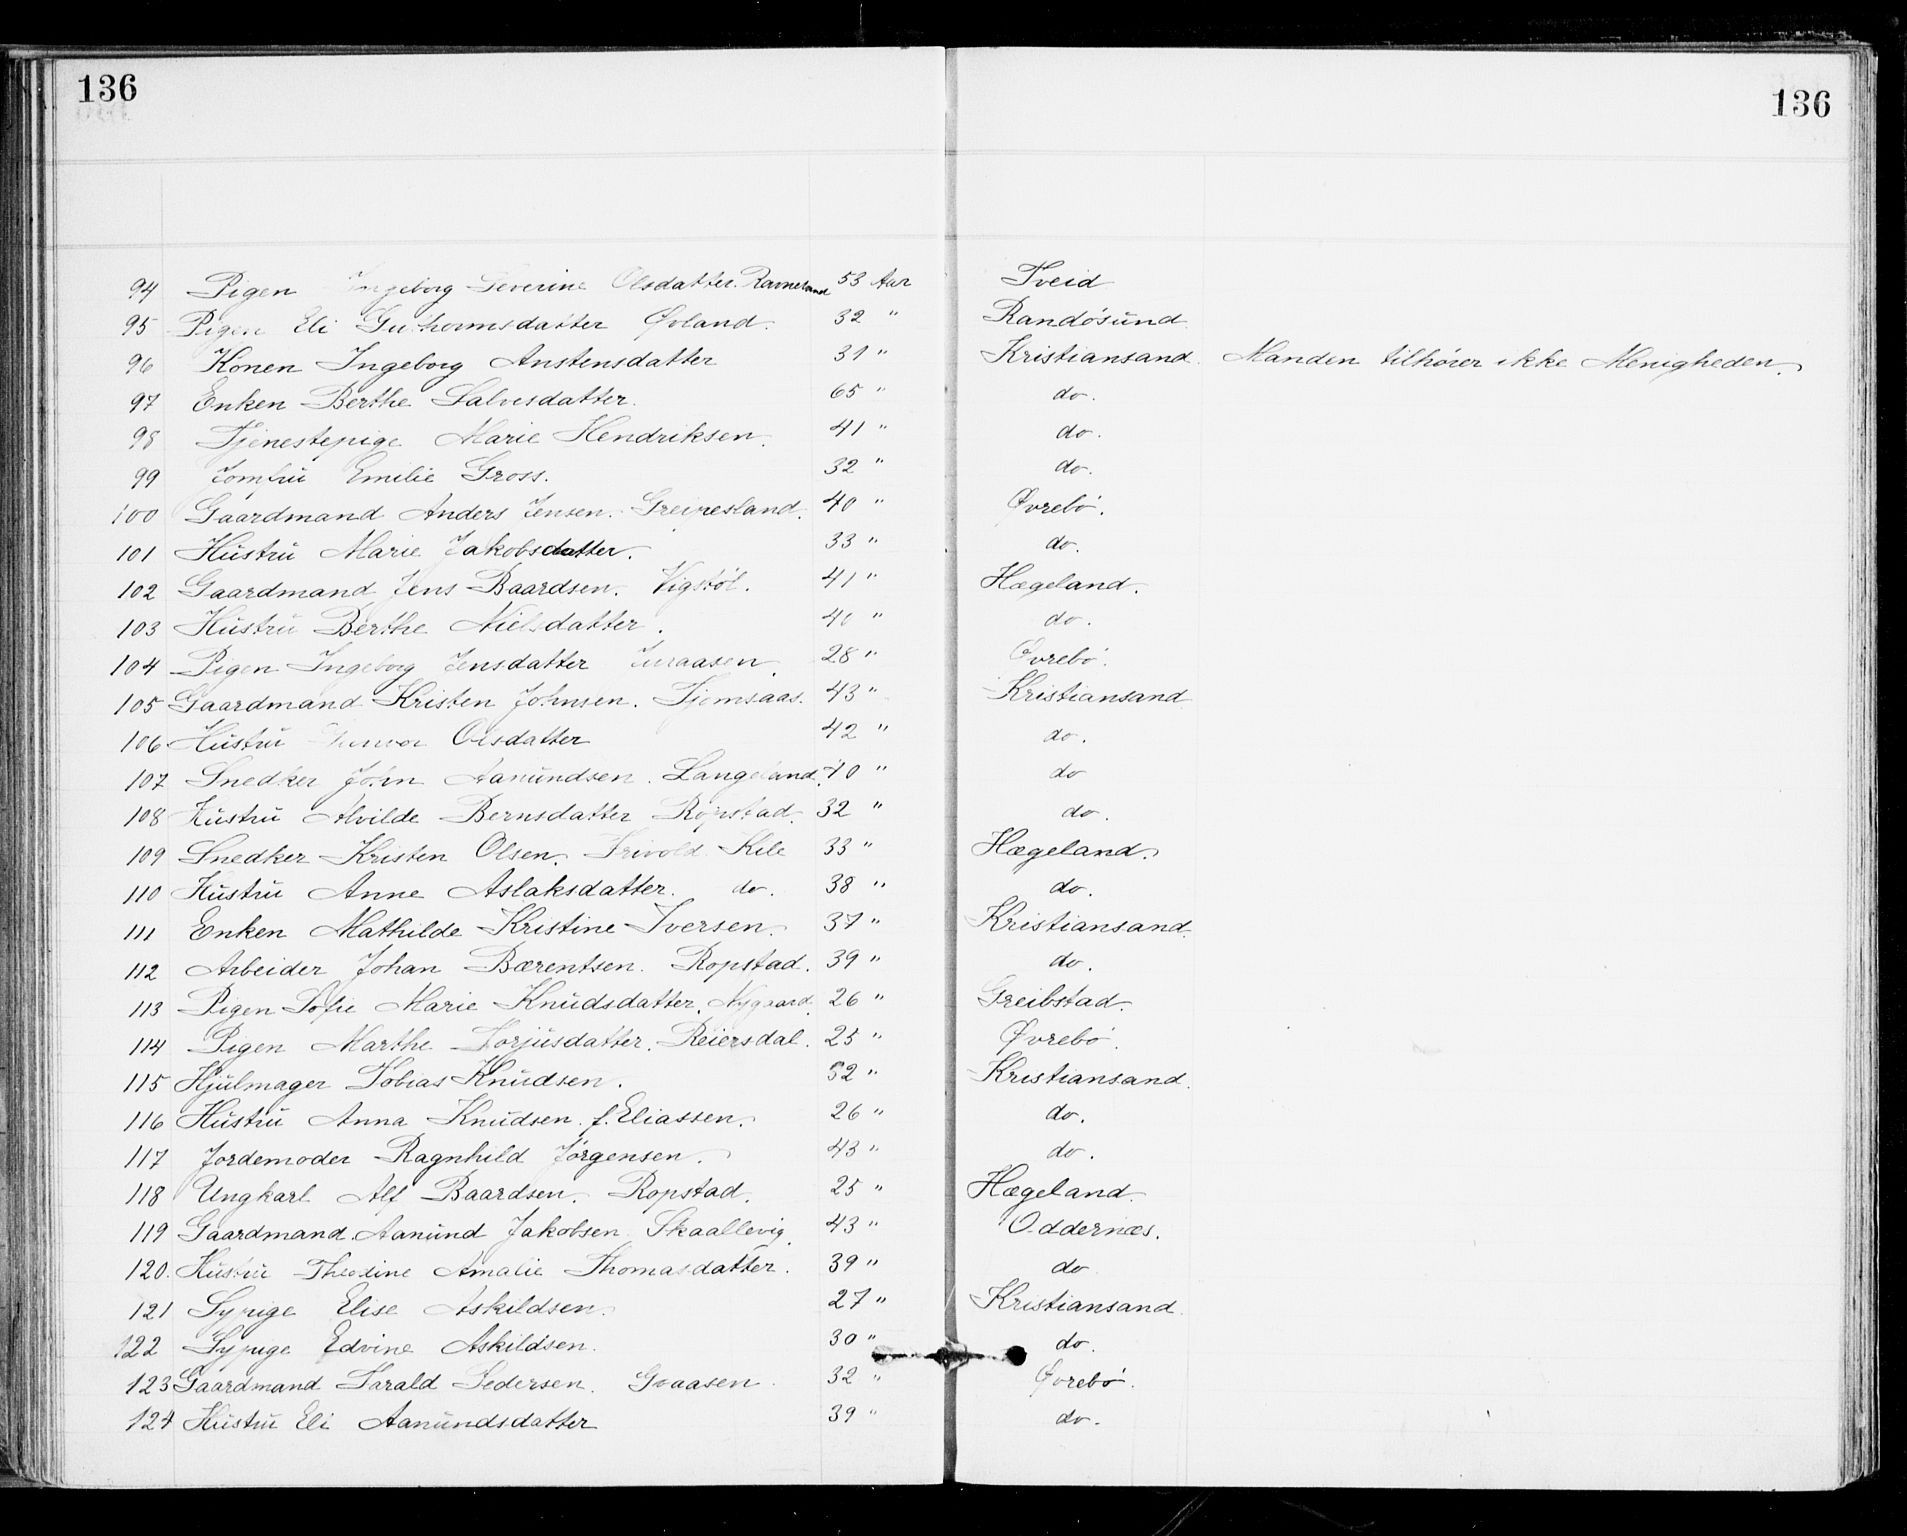 136 136
94 Pigen Ingeborg Severine Olsdatter. Ravneland 53 Aar Tveid
95 Pigen Eli Guthormsdatter Øvland. 32 " Randösund
96 Konen Ingeborg Anstensdatter 31 " Kristiansand. Manden tilhører ikke Menigheden.
97 Enken Berthe Salvesdatter. 65 " do.
98 Tjenestepige Marie Hendriksen. 41 " do.
99 Jomfru Emilie Gross. 32 " do.
100 Gaardmand Anders Jensen. Greipesland. 40 " Øvrebö.
101 Hustru Marie Jakobsdatter. 33 " do.
102 Gaardmand Jens Baardsen. Vigstöl. 41 " Hægeland.
103 Hustru Berthe Nielsdatter. 40 " do.
104 Pigen Ingeborg Jensdatter 28 " Øvrebö.
105 Gaardmand Kristen Johnsen. Tjomsaas. 43 " Kristiansand
106 Hustru Gunvor Olsdatter 42 " do.
107 Snedker John Aanundsen. Langeland. 40 " do
108 Hustru Alvilde Bernsdatter Röpstad. 32 " do.
109 Snedker Kristen Olsen. Trivold Kile 33 " Hægeland.
110 Hustru Anne Aslaksdatter. do. 38 " do.
111 Enken Mathilde Kristine Iversen. 37 " Kristiansand.
112 Arbeider Johan Bærentsen. Ropstad. 39 " do.
113 Pigen Sofie Marie Knudsdatter. Nygaard. 26 " Greibstad.
114 Pigen Marthe Torjusdatter. Reiersdal. 25 " Øvrebö.
115 Hjulmager Tobias Knudsen. 52 " Kristiansand.
116 Hustru Anna Knudsen f. Eliassen. 26 " do.
117 Jordemoder Ragnhild Jörgensen. 43 " do.
118 Ungkarl Alf Baardsen. Ropstad. 25 " Hægeland.
119 Gaardmand. Aanund Jakobsen Skaallevig. 43 " Oddernæs.
120. Hustru Theodine Amalie Thomasdatter. 39 " do
121 Sypige Elise Askildsen. 27 " Kristiansand.
122 Sypige Edvine Askildsen. 30 " do.
123 Gaardmand Tarald Pedersen. Graasen. 32 " Øvrebö.
124 Hustru Eli Aanundsdatter 39 " do.